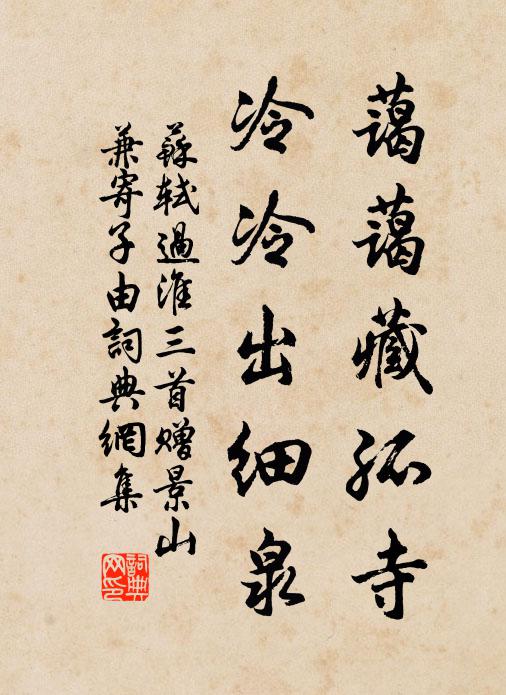 藹藹藏孤寺
冷冷出細泉
蘇軾過淮三首赠景山
兼寄子由詞典網集
詞典
网印